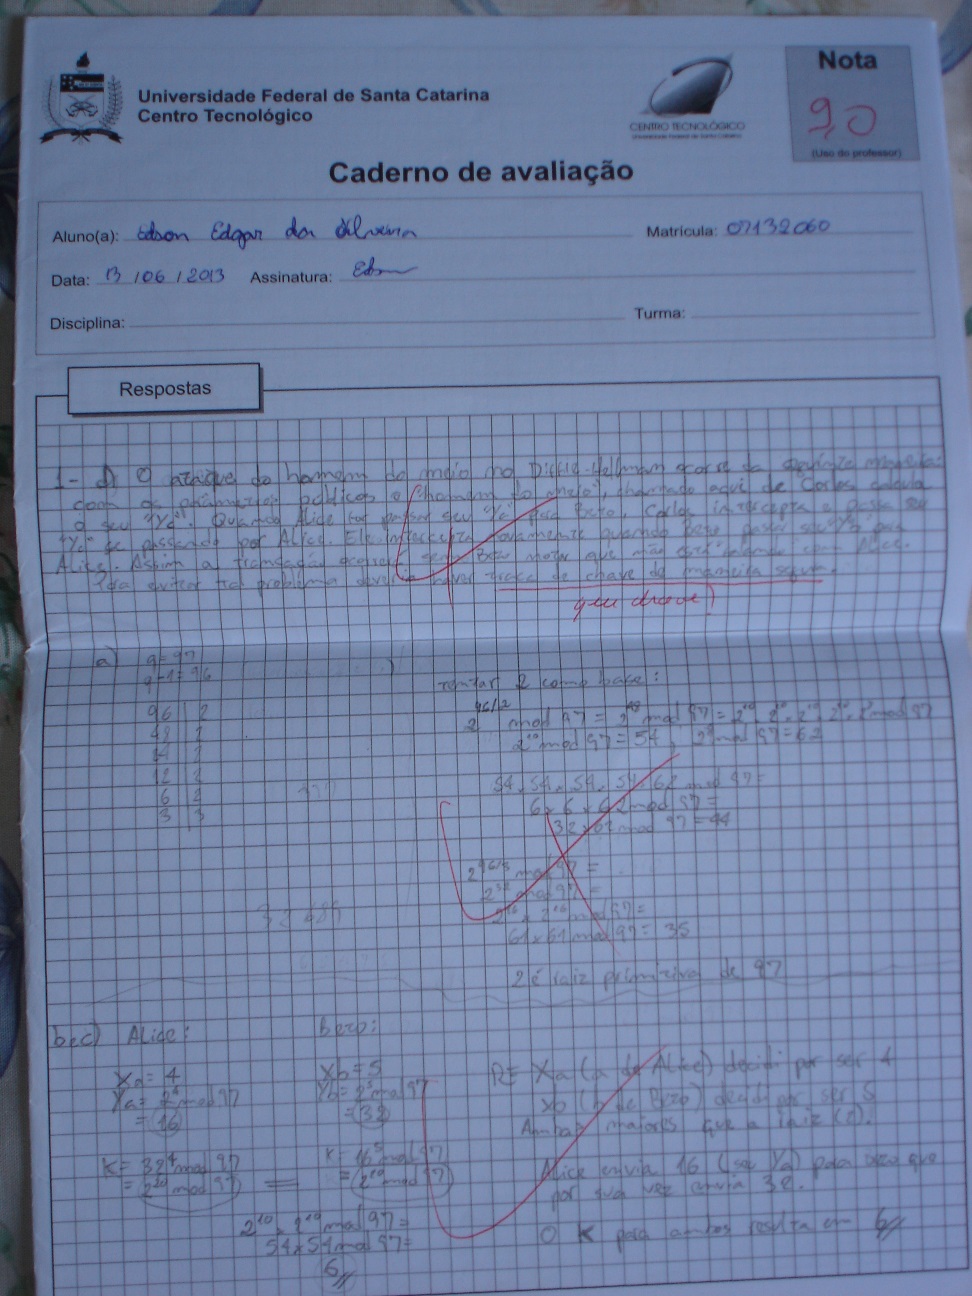 Universidade Federal de Santa Catarina
Centro Tecnológico
CENTRO TECNOLÓGICO
Nota
9,0
(Uso do professor)
Caderno de avaliação
Aluno(a): Edson Edgar da Silveira
Matrícula: 07132060
Data: 13 / 06 / 2013 Assinatura: Edson
Disciplina:
Turma:
Respostas
1- d) O ataque do homem do meio no Diffie-Hellman ocorre da seguinte maneira:
com os parâmetros públicos o "homem do meio", chamado aqui de Carlos calcula
o seu "Yc". Quando Alice for passar seu para Beto, Carlos intercepta e passa seu
"Yc" se passando por Alice. Ele intercepta novamente quando Beto passar seu para
Alice. Assim a transação ocorrerá sem Beto notar que não está falando com Alice.
Para evitar tal problema deveria haver troca de chave de maneira segura.
a) q = 97
q-1 = 96
96 | 2
48 | 2
24 | 2
12 | 2
6 | 2
3 | 3
tentar 2 como base:
2^96/2 mod 97 = 2^48 mod 97 = 2^10 . 2^10 . 2^10 . 2^10 . 2^8 mod 97
2^10 mod 97 = 54 2^8 mod 97 = 62
54 x 54 x 54 x 54 x 62 mod 97 =
6 x 6 x 62 mod 97 =
mod 97 = 44
2^96/3 mod 97 =
2^32 mod 97 =
2^16 x 2^16 mod 97 =
61 x 61 mod 97 = 35
2 é raiz primitiva de 97
b e c) Alice:
Beto:
Xa = 4
Ya = 2^4 mod 97
= 16
K = 32^4 mod 97
= 2^20 mod 97
=
Xb = 5
Yb = 2^5 mod 97
= 32
K = 16^5 mod 97
= 2^20 mod 97
2^10 . 2^10 mod 97 =
54 x 54 mod 97 =
6
Xa (a de Alice) decidi por ser 4
Xb (b de Beto) decidi por ser 5
Ambas maiores que a raiz (2).
Alice envia 16 (seu Ya) para Beto que
por sua vez envia 32.
O K para ambos resulta em 6